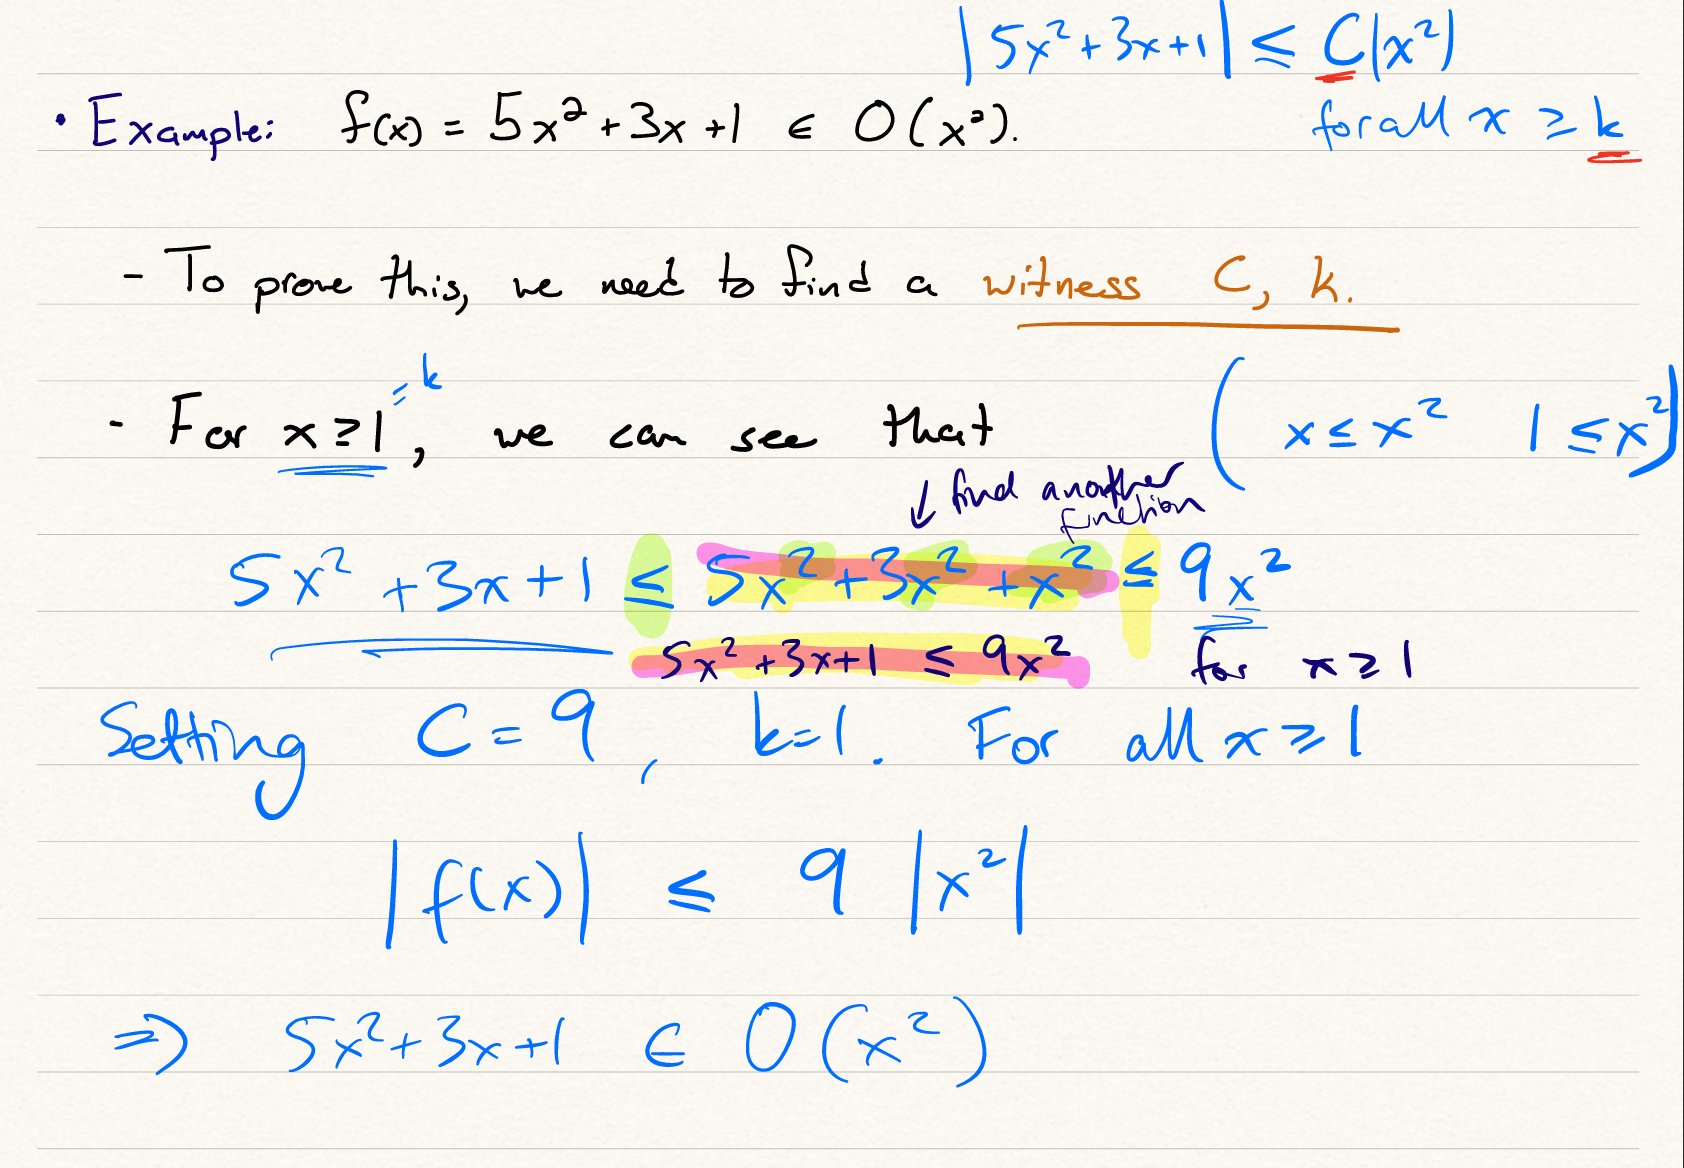 |5x² + 3x + 1| ≤ C|x²|
for all x ≥ k
• Example: f(x) = 5x² + 3x + 1 ∈ O(x²).
- To prove this, we need to find a witness C, k.
= k
- For x ≥ 1, we can see that (x ≤ x² 1 ≤ x²)
↓ find another
function
5x² + 3x + 1 ≤ 5x² + 3x² + x² ≤ 9x²
5x² + 3x + 1 ≤ 9x² for x ≥ 1
Setting C = 9, k = 1. For all x ≥ 1
|f(x)| ≤ 9 |x²|
⇒ 5x² + 3x + 1 ∈ O(x²)